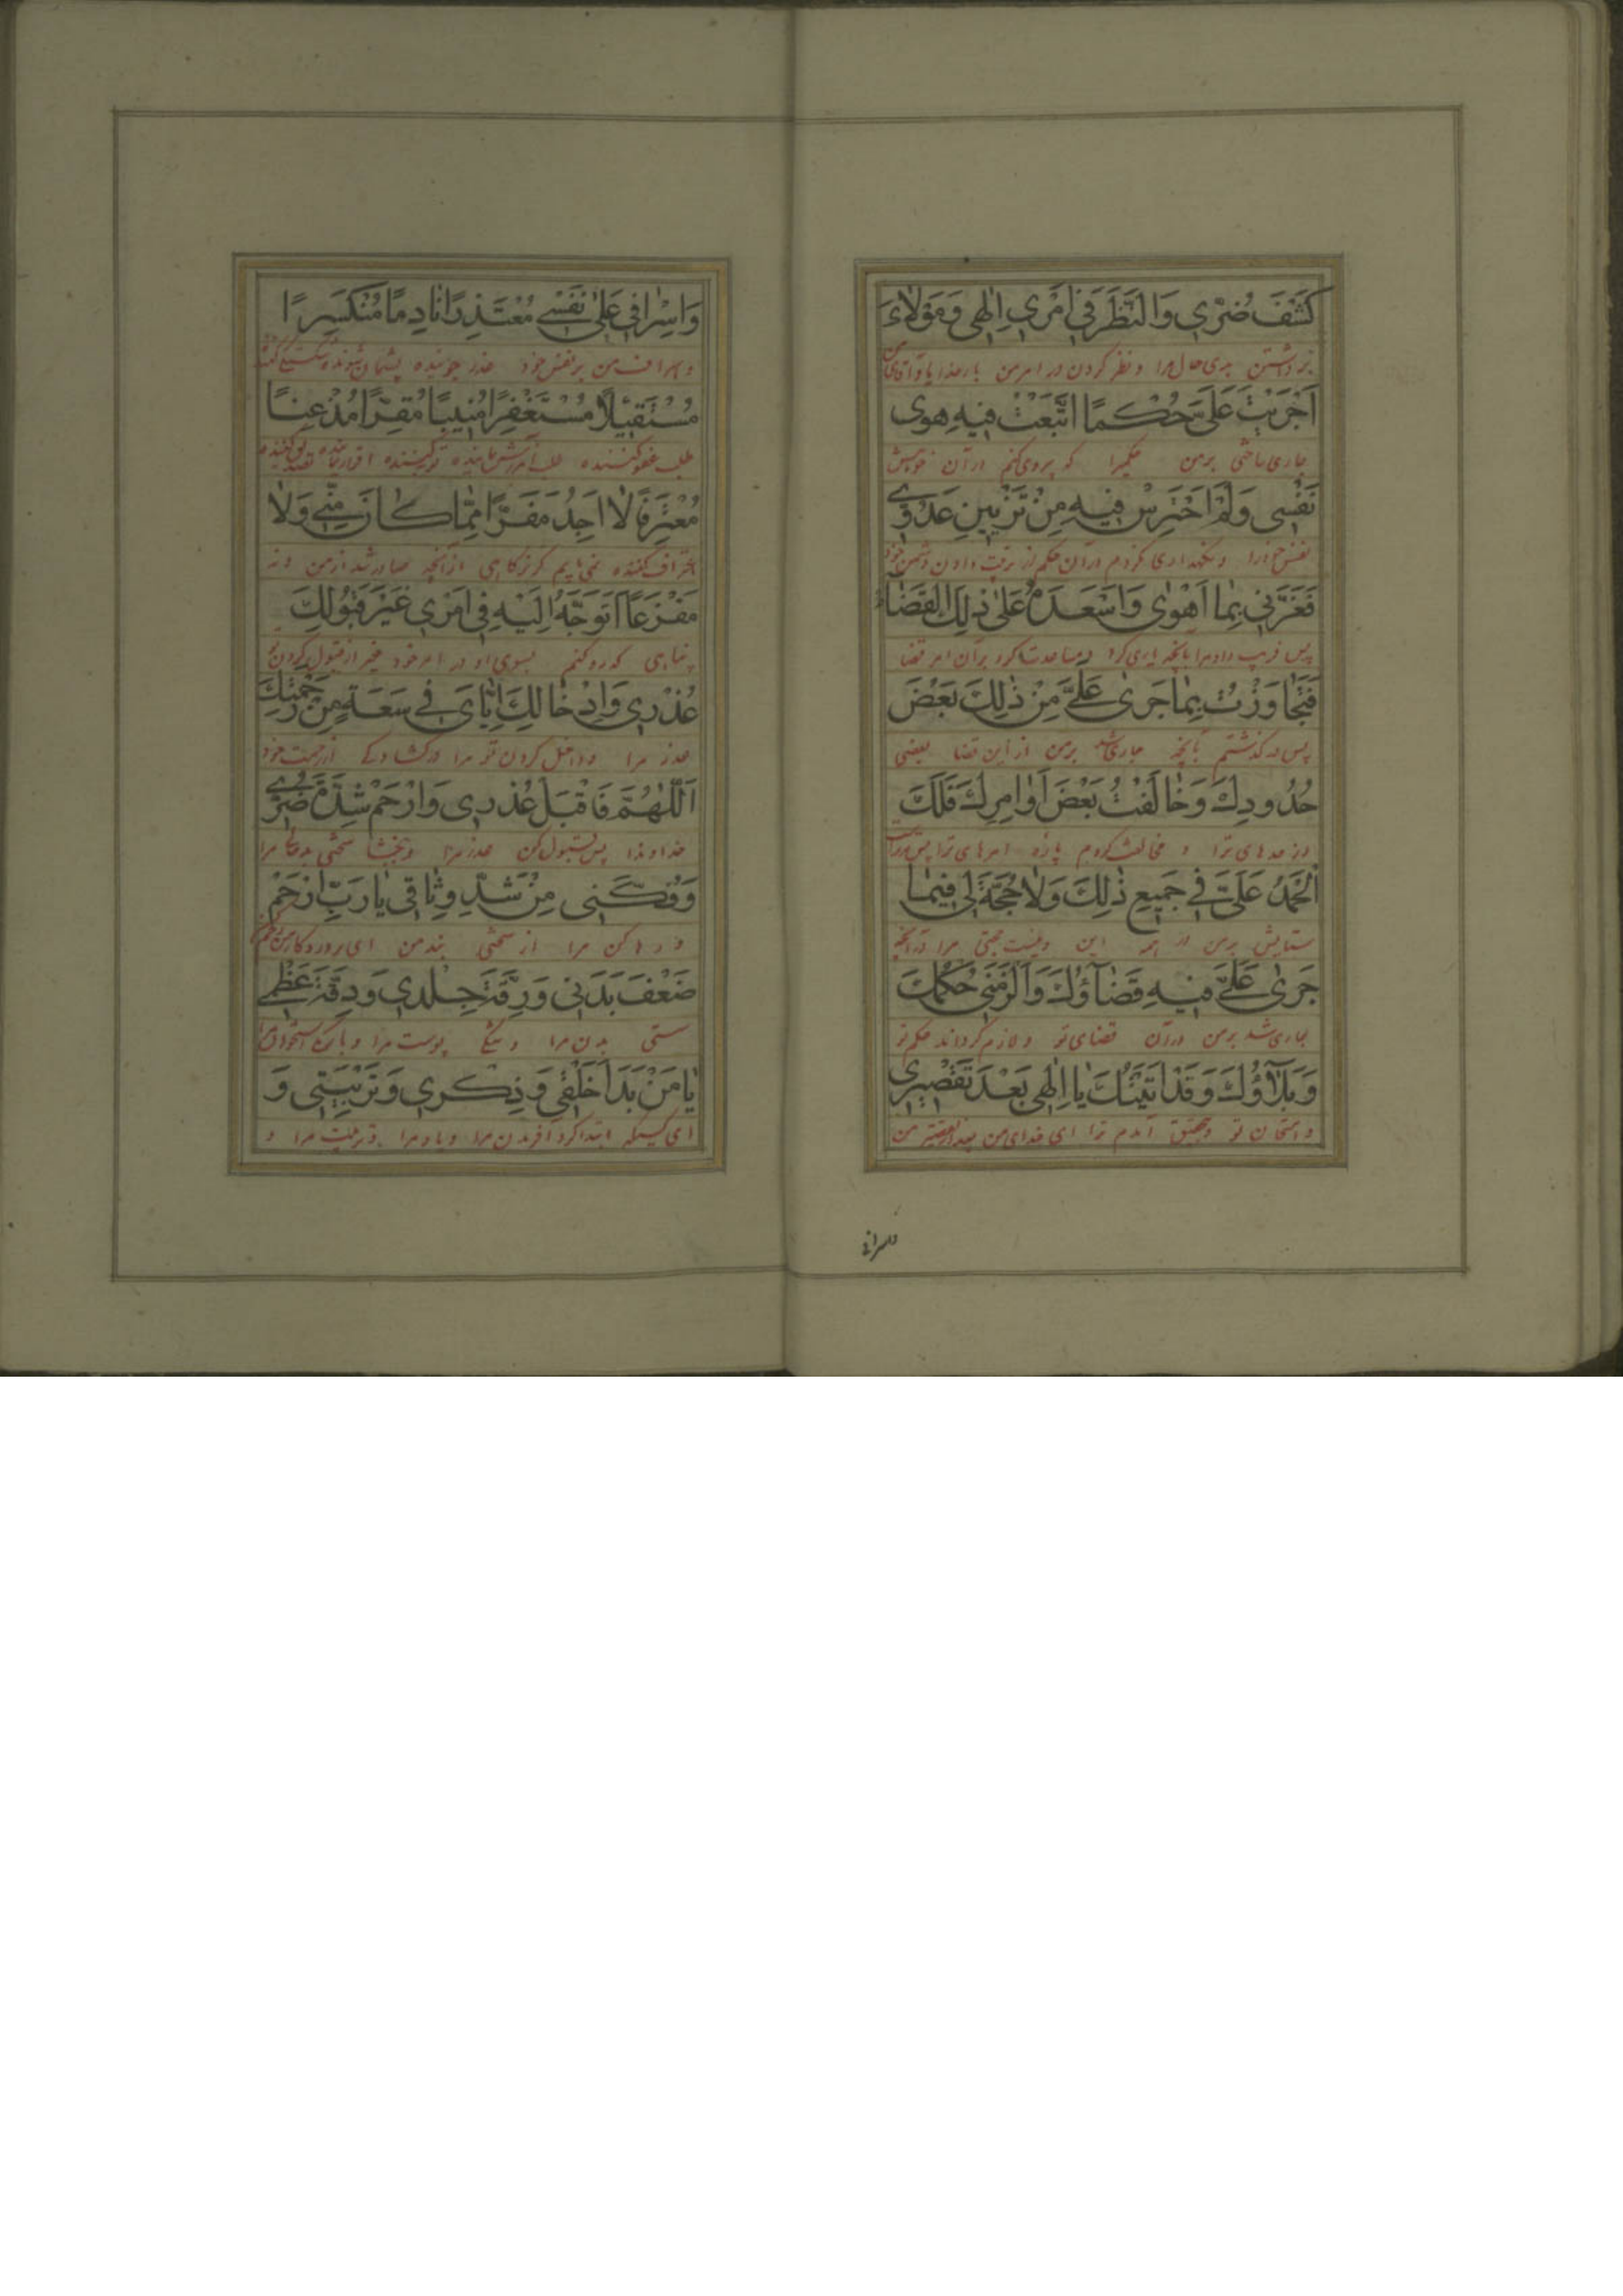 كَشْفَ ضُرّي وَالنَّظَرَ في اَمْري اِلٰهي وَمَوْلاٰيَ
برداشتن بدی حال مرا و نظر کردن در امر من بارخدایا و آقای من
اَجْرَيْتَ عَلَىَّ حُكْمًا اتَّبَعْتُ فيهِ هَوٰى
جاری ساختی بر من حکمیرا که پیروی کنم در آن خواهش
نَفْسى وَلَمْ اَحْتَرِسْ فيهِ مِنْ تَزْيينِ عَدُوّي
نفس خود را و نگهداری نکردم در آن حکم از زینت دادن دشمن خود
فَغَرَّنى بِمٰا اَهْوٰى وَاَسْعَدَهُ عَلىٰ ذٰلِكَ الْقَضٰاءُ
پس فریب داد مرا بآنچه یاری کرد و مساعدت کرد بر آن امر قضا
فَتَجٰاوَزْتُ بِمٰا جَرىٰ عَلَىَّ مِنْ ذٰلِكَ بَعْضَ
پس در گذشتم بآنچه جاری شد بر من از این قضا بعضی
حُدُودِكَ وَخٰالَفْتُ بَعْضَ اَوٰامِرِكَ فَلَكَ
از حدهای ترا و مخالفت کردم پاره امرهای ترا پس مر تراست
الْحَمْدُ عَلَىَّ في جَميعِ ذٰلِكَ وَلاٰ حُجَّةَ لى فيمٰا
ستایش بر من در همه این و نیست حجتی مرا در آنچه
جَرىٰ عَلَىَّ فيهِ قَضٰاۤؤُكَ وَاَلْزَمَنى حُكْمُكَ
جاری شد بر من در آن قضای تو و لازم گرداند حکم تو
وَبَلاٰۤؤُكَ وَقَدْ اَتَيْتُكَ يٰا اِلٰهى بَعْدَ تَقْصيرى
و امتحان تو و بتحقیق آمدم ترا ای خدای من بعد از تقصیر من
وَاِسْرٰافي عَلىٰ نَفْسى مُعْتَذِرًا نٰادِمًا مُنْكَسِرًا
و اسراف من بر نفس خود عذر جوینده پشیمان شونده
مُسْتَقيلًا مُسْتَغْفِرًا مُنيبًا مُقِرًّا مُذْعِنًا
طلب عفو کننده طلب آمرزش نماینده توبه کننده اقرار نماینده
مُعْتَرِفًا لاٰ اَجِدُ مَفَرًّا مِمّٰا كٰانَ مِنّى وَلاٰ
اعتراف کننده نمی یابم گریزگاهی از آنچه صادر شد از من و نه
مَفْزَعًا اَتَوَجَّهُ اِلَيْهِ في اَمْري غَيْرَ قَبُولِكَ
پناهی که رو کنم بسوی او در امر خود غیر از قبول کردن تو
عُذْري وَاِدْخٰالِكَ اِيّٰاىَ في سَعَةٍ مِنْ رَحْمَتِكَ
عذر مرا و داخل کردن تو مرا در گشادگی از رحمت خود
اَللّٰهُمَّ فَاقْبَلْ عُذْرى وَارْحَمْ شِدَّةَ ضُرّى
خداوندا پس قبول کن عذر مرا و ببخشا سختی بدحالی مرا
وَفُكَّنى مِنْ شَدِّ وِثٰاقى يٰا رَبِّ ارْحَمْ
و رها کن مرا از سختی بند من ای پروردگار من رحم کن
ضَعْفَ بَدَنى وَرِقَّةَ جِلْدي وَدِقَّةَ عَظْمى
سستی بدن مرا و تنگی پوست مرا و باریکی استخوان مرا
يٰا مَنْ بَدَاَ خَلْقى وَذِكْري وَتَرْبِيَتى وَ
ای کسیکه ابتدا کرد آفریدن مرا و یاد مرا و تربیت مرا و